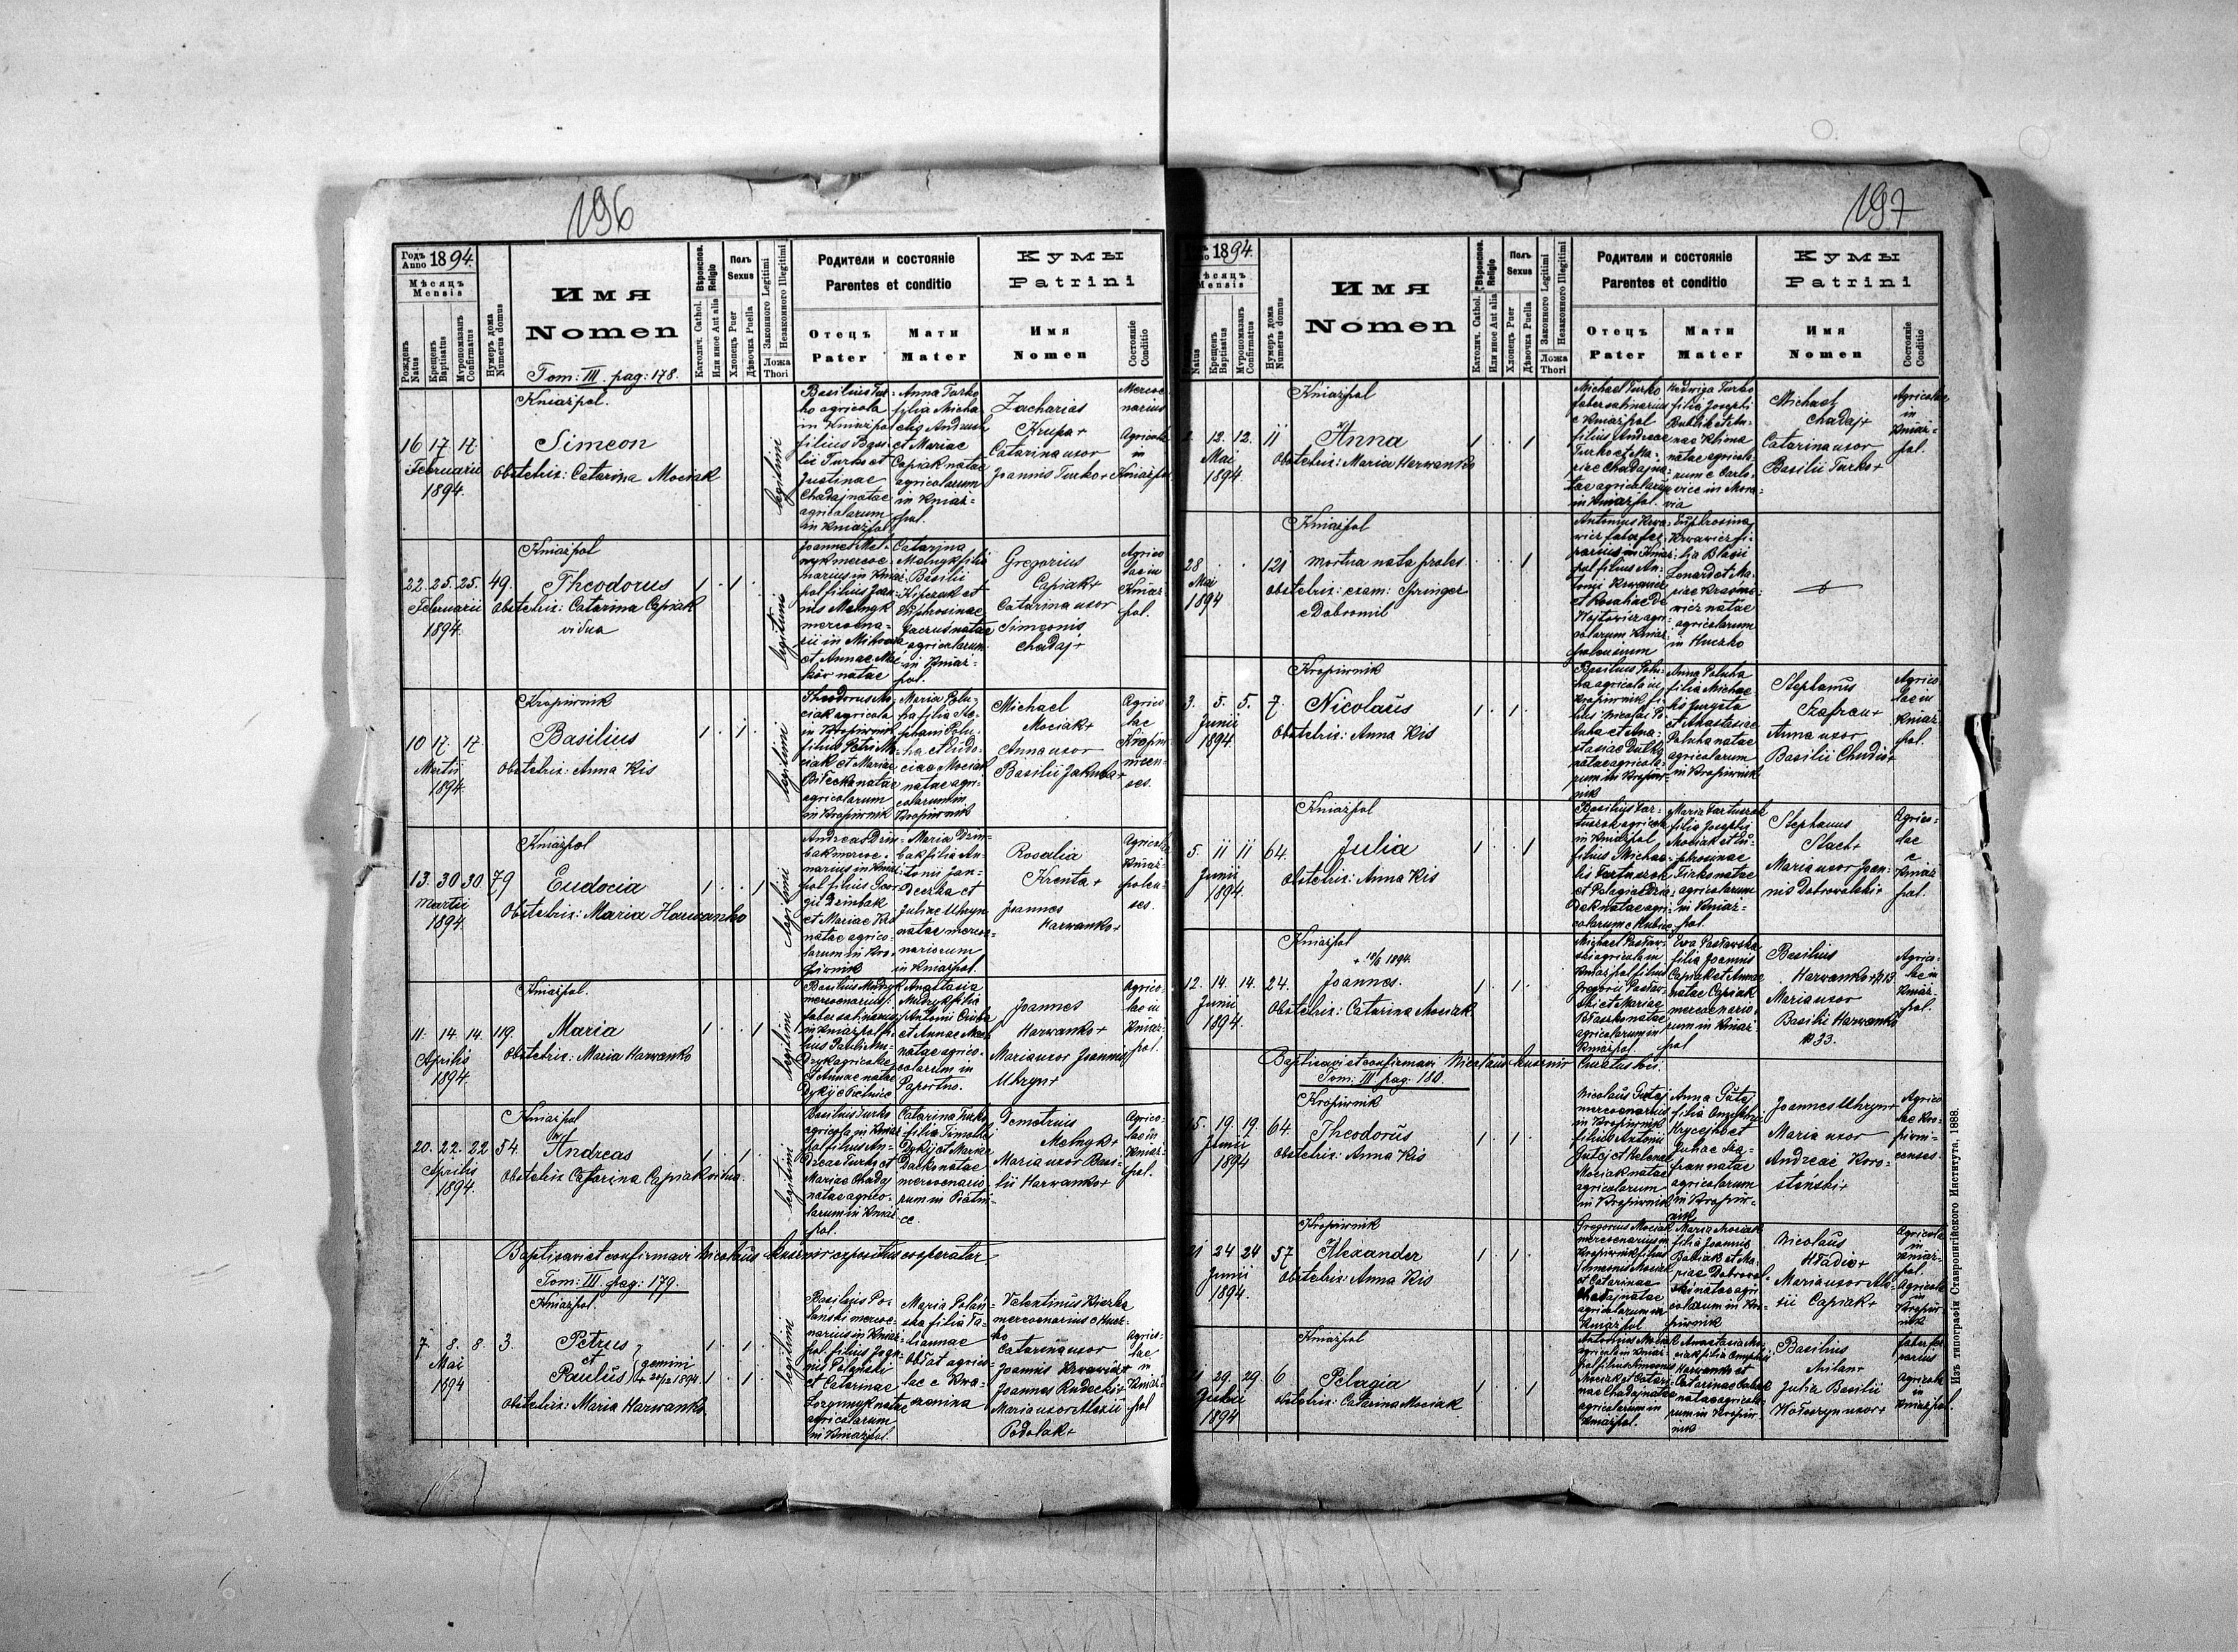 196
Годъ Anno 1894.
Мѣсяцъ
Mensis
Рожденъ Natus
Крещенъ Baptisatus
Мѵропомазанъ Confirmatus
Нумеръ дома Numerus domus
Имя
Nomen
Tom: III. pag: 178.
Вѣроиспов. Religio
Католич. Cathol.
Или иное Aut alia
Полъ
Sexus
Хлопецъ Puer
Дѣвочка Puella
Законного Legitimi
Незаконного Illegitimi
Ложа
Thori
Родители и состояніе
Parentes et conditio
Отецъ
Pater
Мати
Mater
Кумы
Patrini
Имя
Nomen
Состояніе Conditio
Kniażpol.
16 17. 17.
Februarii
1894.
Simeon
Obstetrix: Catarina Mociak
legitimi
Basilius Tur-
ko agricola
in Kniażpol
filius Basi-
lii Turko et
Justinae
Chadaj natae
agricolarum
in Kniażpol
Anna Turko
filia Micha-
elis Andrush
et Mariae
Capiak natae
agricolarum
in Kniaż-
pol.
Zacharias
Krupa+
Catarina uxor
Joannis Turko+
Merce
narius
Agricola
in
Kniażpol
Kniażpol
22. 25. 25. 49.
Februarii
1894.
Theodorus
Obstetrix: Catarina Capiak
vidua
1. . 1. .
legitimi
Joannes Mel-
nyk merce-
narius in Kniaż-
pol filius Joan-
nis Melnyk
mercena-
rii in
et Annae
natae
Catarina
Melnyk filia
Basilii
et
Euphrosinae
natae
agricolarum
in Kniaż-
pol.
Gregorius
Capiak+
Catarina uxor
Simeonis
Chadaj+
Agrico
lae in
Kniaż
pol.
Kropiwnik
10 17. 17.
Martii
1894.
Basilius
Obstetrix: Anna Kis
1. . 1. .
legitimi
Theodorus Mo-
ciak agricola
in Kropiwnik
filius Petri Mo-
ciak et Mariae
Biłecka natae
agricolarum
in Kropiwnik
Maria Polu-
ha filia Ste-
phani Polu-
ha et Eudo-
ciae Mociak
natae agri-
colarum in
Kropiwnik
Michael
Mociak+
Anna uxor
Basilii Jakuba+
Agrico
lae
Kropiw-
nicen-
ses.
Kniażpol
13. 30 30 79
Martii
1894.
Eudocia
Obstetrix: Maria Harwanko
1. . . 1
legitimi
Andreas Dzin-
bak merce-
narius in Kniaż-
pol filius Geor-
gii Dzimbak
et Mariae
natae agrico-
larum in Kro-
piwnik
Maria Dzin-
bak filia An-
tonii Jan-
Dzerka et
Juliae Uhryn
natae merce-
nariorum
in Kniażpol.
Rosalia
Krenta+
Joannes
Harwanko+
Agricola
Kniaż-
polen-
ses.
Kniażpol.
11. 14. 14. 119.
Aprilis
1894.
Maria
Obstetrix: Maria Harwanko
1. . . 1
legitimi
Basilius Mudryk
mercenarius
faber salinarius
in Kniażpol fi-
lius Pauli Mu-
dryk agricolae
et Annae natae
Dykyj
Anastasia
Mudryk filia
Antonii Ciuba
et Annae
natae agrico-
larum in
Paportno.
Joannes
Harwanko+
Maria uxor Joannis
Uhryn+
Agrico-
lae in
Kniaż-
pol.
Kniażpol
20. 22. 22 54.
Aprilis
1894.
Andreas
Obstetrix Catarina Capiak vidua.
1. . 1.
legitimi
Basilius Turko
agricola in Kniaż-
pol filius An-
dreas Turko et
Mariae Chadaj
natae agrico-
larum in Kniaż-
pol.
Catarina Turko
filia Timothei
Dykij et Mariae
natae
mercenario
rum in
Demetrius
Melnyk+
Maria uxor Basi-
lii Harwanko+
Agrico-
lae in
Kniaż-
pol.
Baptisavi et confirmavi Nicolaus expositus cooperator
Tom: III. pag: 179.
Kniażpol.
7. 8. 8. 3.
Mai
1894
Petrus
et gemini
Paulus
Obstetrix: Maria Harwanko
1. . 1.
1. . 1.
legitimi
Basilius Po-
lański merce-
narius in Kniaż-
pol. filius Joan-
nis Polański
et Catarinae
natae
agricolarum
in Kniażpol.
Maria Polań-
ska filia Ta-
tiannae
agrico-
lae
Valentinus
mercenarius
Catarina uxor
Joannis
Joannes Rudecki+
Maria uxor Alexii
Podolak+
Agrico-
lae
in
Kniaż-
pol
197
Anno 1894.
Мѣсяцъ
Mensis
Natus
Крещенъ Baptisatus
Мѵропомазанъ Confirmatus
Нумеръ дома Numerus domus
Имя
Nomen
Вѣроиспов. Religio
Католич. Cathol.
Или иное Aut alia
Полъ
Sexus
Хлопецъ Puer
Дѣвочка Puella
Законного Legitimi
Незаконного Illegitimi
Ложа
Thori
Родители и состояніе
Parentes et conditio
Отецъ
Pater
Мати
Mater
Кумы
Patrini
Имя
Nomen
Состояніе Conditio
Kniażpol
12. 12. 11
Mai
1894.
Anna
Obstetrix: Maria Harwanko
1 . . 1
Michael Turko
faber salinarius
e Kniażpol
filius Andreae
Turko et Ma-
riae Chadaj na-
tae agricolarum
in Kniażpol.
Hedwiga Turko
filia Josephi
et An-
nae Klima
natae agricola-
rum e Carlo-
vice in Mora-
via
Michael
Chadaj+
Catarina uxor
Basilii Turko+
Agricolae
in
Kniaż-
pol.
Kniażpol
28 . . 121
Mai
1894
mortua nata proles
Obstetrix: exam: Springer
e Dobromil
. . . 1
Antonius
faber fer-
rarius in Kniaż-
pol filius An-
tonii
et Rosaliae de
Wojtowicz agri-
colarum Kniaż-
polensium
Euphrosina
fi-
lia Blasii
Lenard et Ma-
riae
natae
agricolarum
in Huczko
Kropiwnik
3. 5. 5. 7.
Junii
1894.
Nicolaus
Obstetrix: Anna Kis
1 . 1 .
Basilius Polu-
ha agricola in
Kropiwnik fi-
lius Nicolai Po-
luha et Ana-
stasiae
natae agricola-
rum in Kropiw-
nik
Anna Poluha
filia Michae-
lis
et Anastasiae
Poluha natae
agricolarum
in Kropiwnik
Stephanus
Szafran+
Anna uxor
Basilii Chudio+
Agrico
lae in
Kniaż
pol.
Kniażpol
5. 11 11 64.
Junii
1894.
Julia
Obstetrix: Anna Kis
1 . . 1
Basilius
agricola
in Kniażpol
filius Michae-
lis
et Pelagiae
natae agri-
colarum e
Maria
filia Josephi
Mociak et Eu-
phrosinae
Turko natae
agricolarum
in Kniaż-
pol.
Stephanus
Stach+
Maria uxor Joan-
nis Dobrowolski+
Agrico-
lae
e
Kniaż
pol.
Kniażpol
+ 19/6 1894.
12. 14. 14. 24.
Junii
1894.
Joannes.
Obstetrix: Catarina Mociak
1 . 1 .
Michael
agricola in
Kniażpol filius
Gregorii
et Mariae
natae
agricolarum in
Kniażpol
Eva
filia Joannis
Capiak et Annae
natae Capiak
mercenario-
rum in Kniaż
pol
Basilius
Harwanko+
Maria uxor
Basilii Harwanko
№ 33.
Agrico-
lae in
Kniaż-
pol.
Baptisavi et confirmavi Nicolaus Curatus loci.
Tom: III pag: 180.
Kropiwnik
15. 19. 19. 64.
Junii
1894
Theodorus
Obstetrix: Anna Kis
1 . 1 .
Nicolaus Gutej
mercenarius
in Kropiwnik
filius Antonii
Gutej et Helenae
Mociak natae
agricolarum
in Kropiwnik
Anna Gutej
filia
et
Juliae Sza-
fran natae
agricolarum
in Kropiw-
nik
Joannes Uhryn+
Maria uxor
Andreae Koro-
stenski+
Agrico
lae Kro-
piwni-
censes.
Kropiwnik
21 24 24 57
Junii
1894.
Alexander
Obstetrix: Anna Kis
1 . 1 .
Gregorius Mociak
mercenarius in
Kropiwnik filius
Simeonis Mociak
et Catarinae
Chadaj natae
agricolarum in
Kniażpol
Maria Mociak
filia Joannis
et Ma-
riae Dobrowol-
ski natae agri-
colarum in Kro-
piwnik
Nicolaus
Hładio+
Maria uxor
Capiak+
Agricola
in
Kniaż-
pol.
Agricola
in
Kropiw-
nik
Kniażpol
29. 29. 6
1894
Pelagia
Obstetrix: Catarina Mociak
1 . . 1
Antonius Mociak
agricola in Kniaż-
pol filius Simeonis
Mociak et Catari-
nae Chadaj natae
agricolarum in
Kniażpol.
Anastasia Mo-
ciak filia
Harwanko et
Catarinae
natae agricola-
rum in Kropiw-
nik
Basilius
Milan+
Julia Basilii
uxor+
faber fer
rarius
agricola
in
Kniażpol.
Изъ типографіи Ставропигійского Института, 1888.